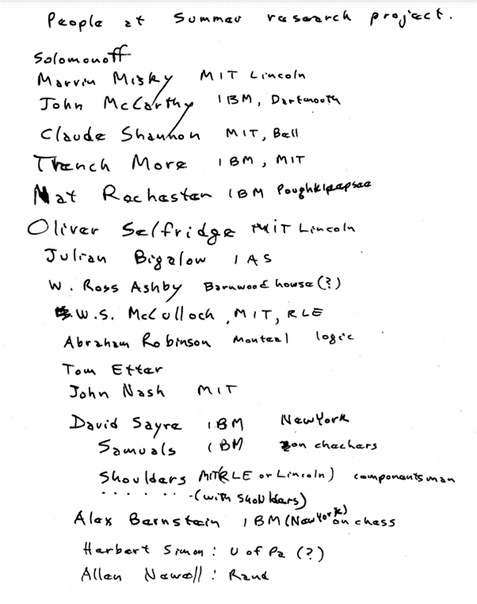 People at Summer research project.
Solomonoff
Marvin Misky MIT Lincoln
John McCarthy IBM, Dartmouth
Claude Shannon MIT, Bell
Trench More IBM, MIT
Nat Rochester IBM Poughkipapsee
Oliver Selfridge MIT Lincoln
Julian Bigalow IAS
W. Ross Ashby Barnwood house (?)
W.S. McCulloch, MIT, RLE
Abraham Robinson Monteal logic
Tom Etter
John Nash MIT
David Sayre IBM NewYork
Samuals IBM on checkers
Shoulders MIT(RLE or Lincoln) components man
. . . . . . -(with Shoulders)
Alex Bernstein IBM (NewYork) on chess
Herbert Simon: U of Pa (?)
Allen Newell: Rand